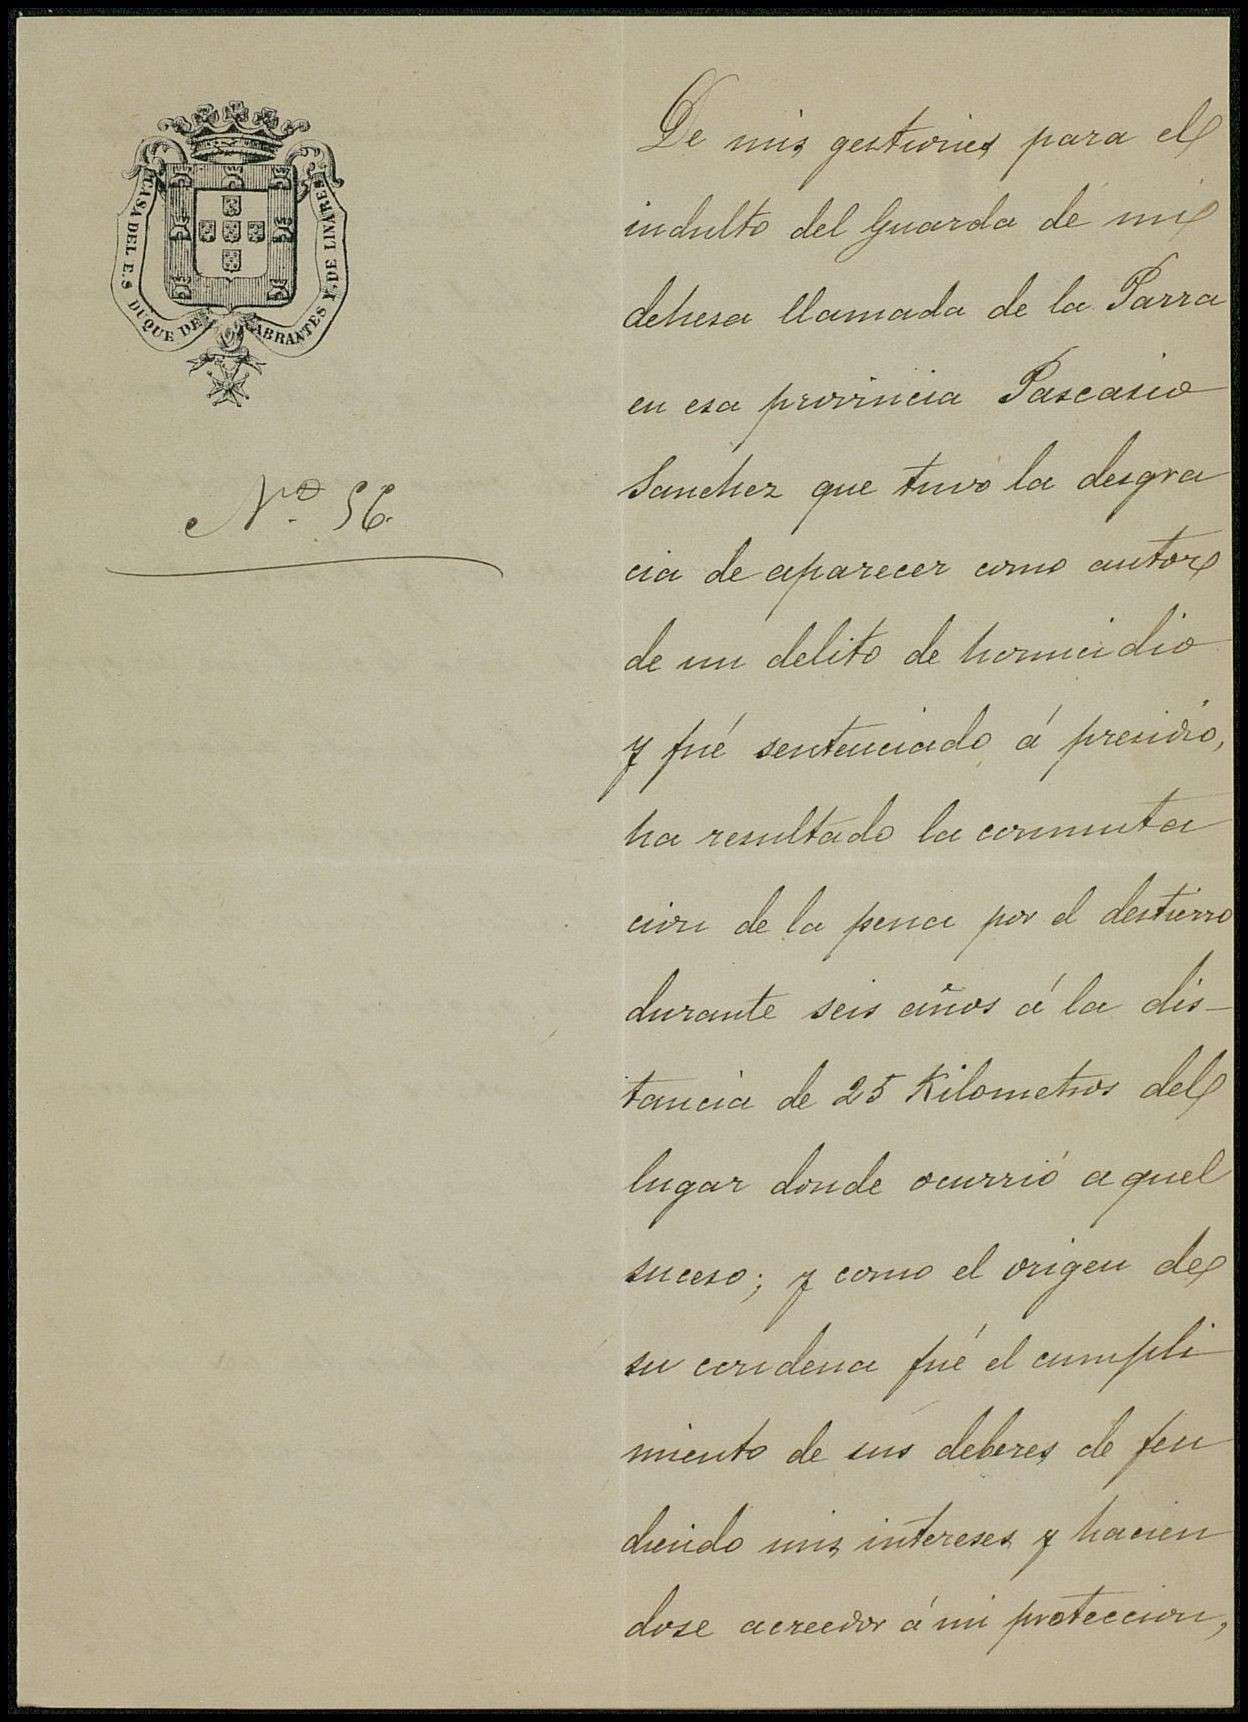 CASA DEL E.S. DUQUE DE ABRANTES Y DE LINARES
Nº. 56.
De mis gestiones para el
indulto del Guarda de mi
dehesa llamada de la Parra
en esa provincia Pascasio
Sanchez que tuvo la desgra
cia de aparecer como autor
de un delito de homicidio
y fué sentenciado á presidio,
ha resultado la conmuta
cion de la pena por el destierro
durante seis años á la dis-
tancia de 25 Kilometros del
lugar donde ocurrió aquel
suceso; y como el origen de
su condena fué el cumpli
miento de sus deberes de fen
diendo mis intereses y hacien
dose acreedor á mi proteccion,